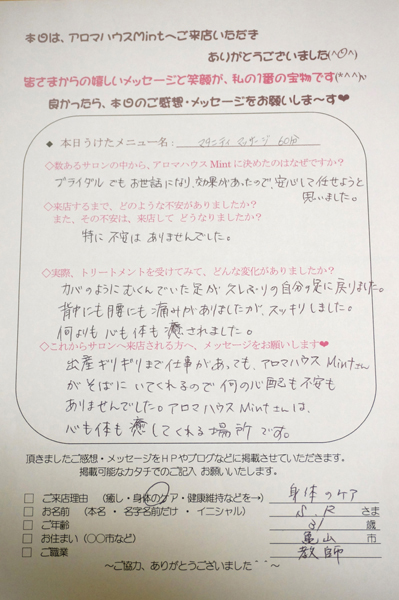 本日は、アロマハウスMintへご来店いただき
ありがとうございました(^○^)
皆さまからの嬉しいメッセージと笑顔が、私の1番の宝物です(*^^*)v
良かったら、本日のご感想・メッセージをお願いしま〜す❤
◆ 本日うけたメニュー名: マタニティ マッサージ 60分
◇数あるサロンの中から、アロマハウス Mint に決めたのはなぜですか？
ブライダルでもお世話になり、効果があったので、安心して任せようと
思いました。
◇来店するまで、どのような不安がありましたか？
また、その不安は、来店して どうなりましたか？
特に 不安は ありませんでした。
◇実際、トリートメントを受けてみて、どんな変化がありましたか？
カバのようにむくんでいた足が 久しぶりの自分の足に戻りました。
背中にも腰にも痛みがありましたが、スッキリしました。
何よりも 心も体も 癒されました。
◇これからサロンへ来店される方へ、メッセージをお願いします❤
出産ギリギリまで仕事があっても、アロマハウス Mintさん
がそばに いてくれるので 何の心配も不安も
ありませんでした。アロマハウス Mintさんは、
心も体も 癒してくれる場所 です。
頂きましたご感想・メッセージをＨＰやブログなどに掲載させていただきます。
掲載可能なカタチでのご記入 お願いいたします。
□ ご来店理由 （癒し・身体のケア・健康維持などを→） 身体のケア
□ お名前 （本名 ・ 名字名前だけ ・ イニシャル） S.R さま
□ ご年齢 31 歳
□ お住まい（○○市など） 亀山 市
□ ご職業 教師
〜ご協力、ありがとうございました＾－＾〜